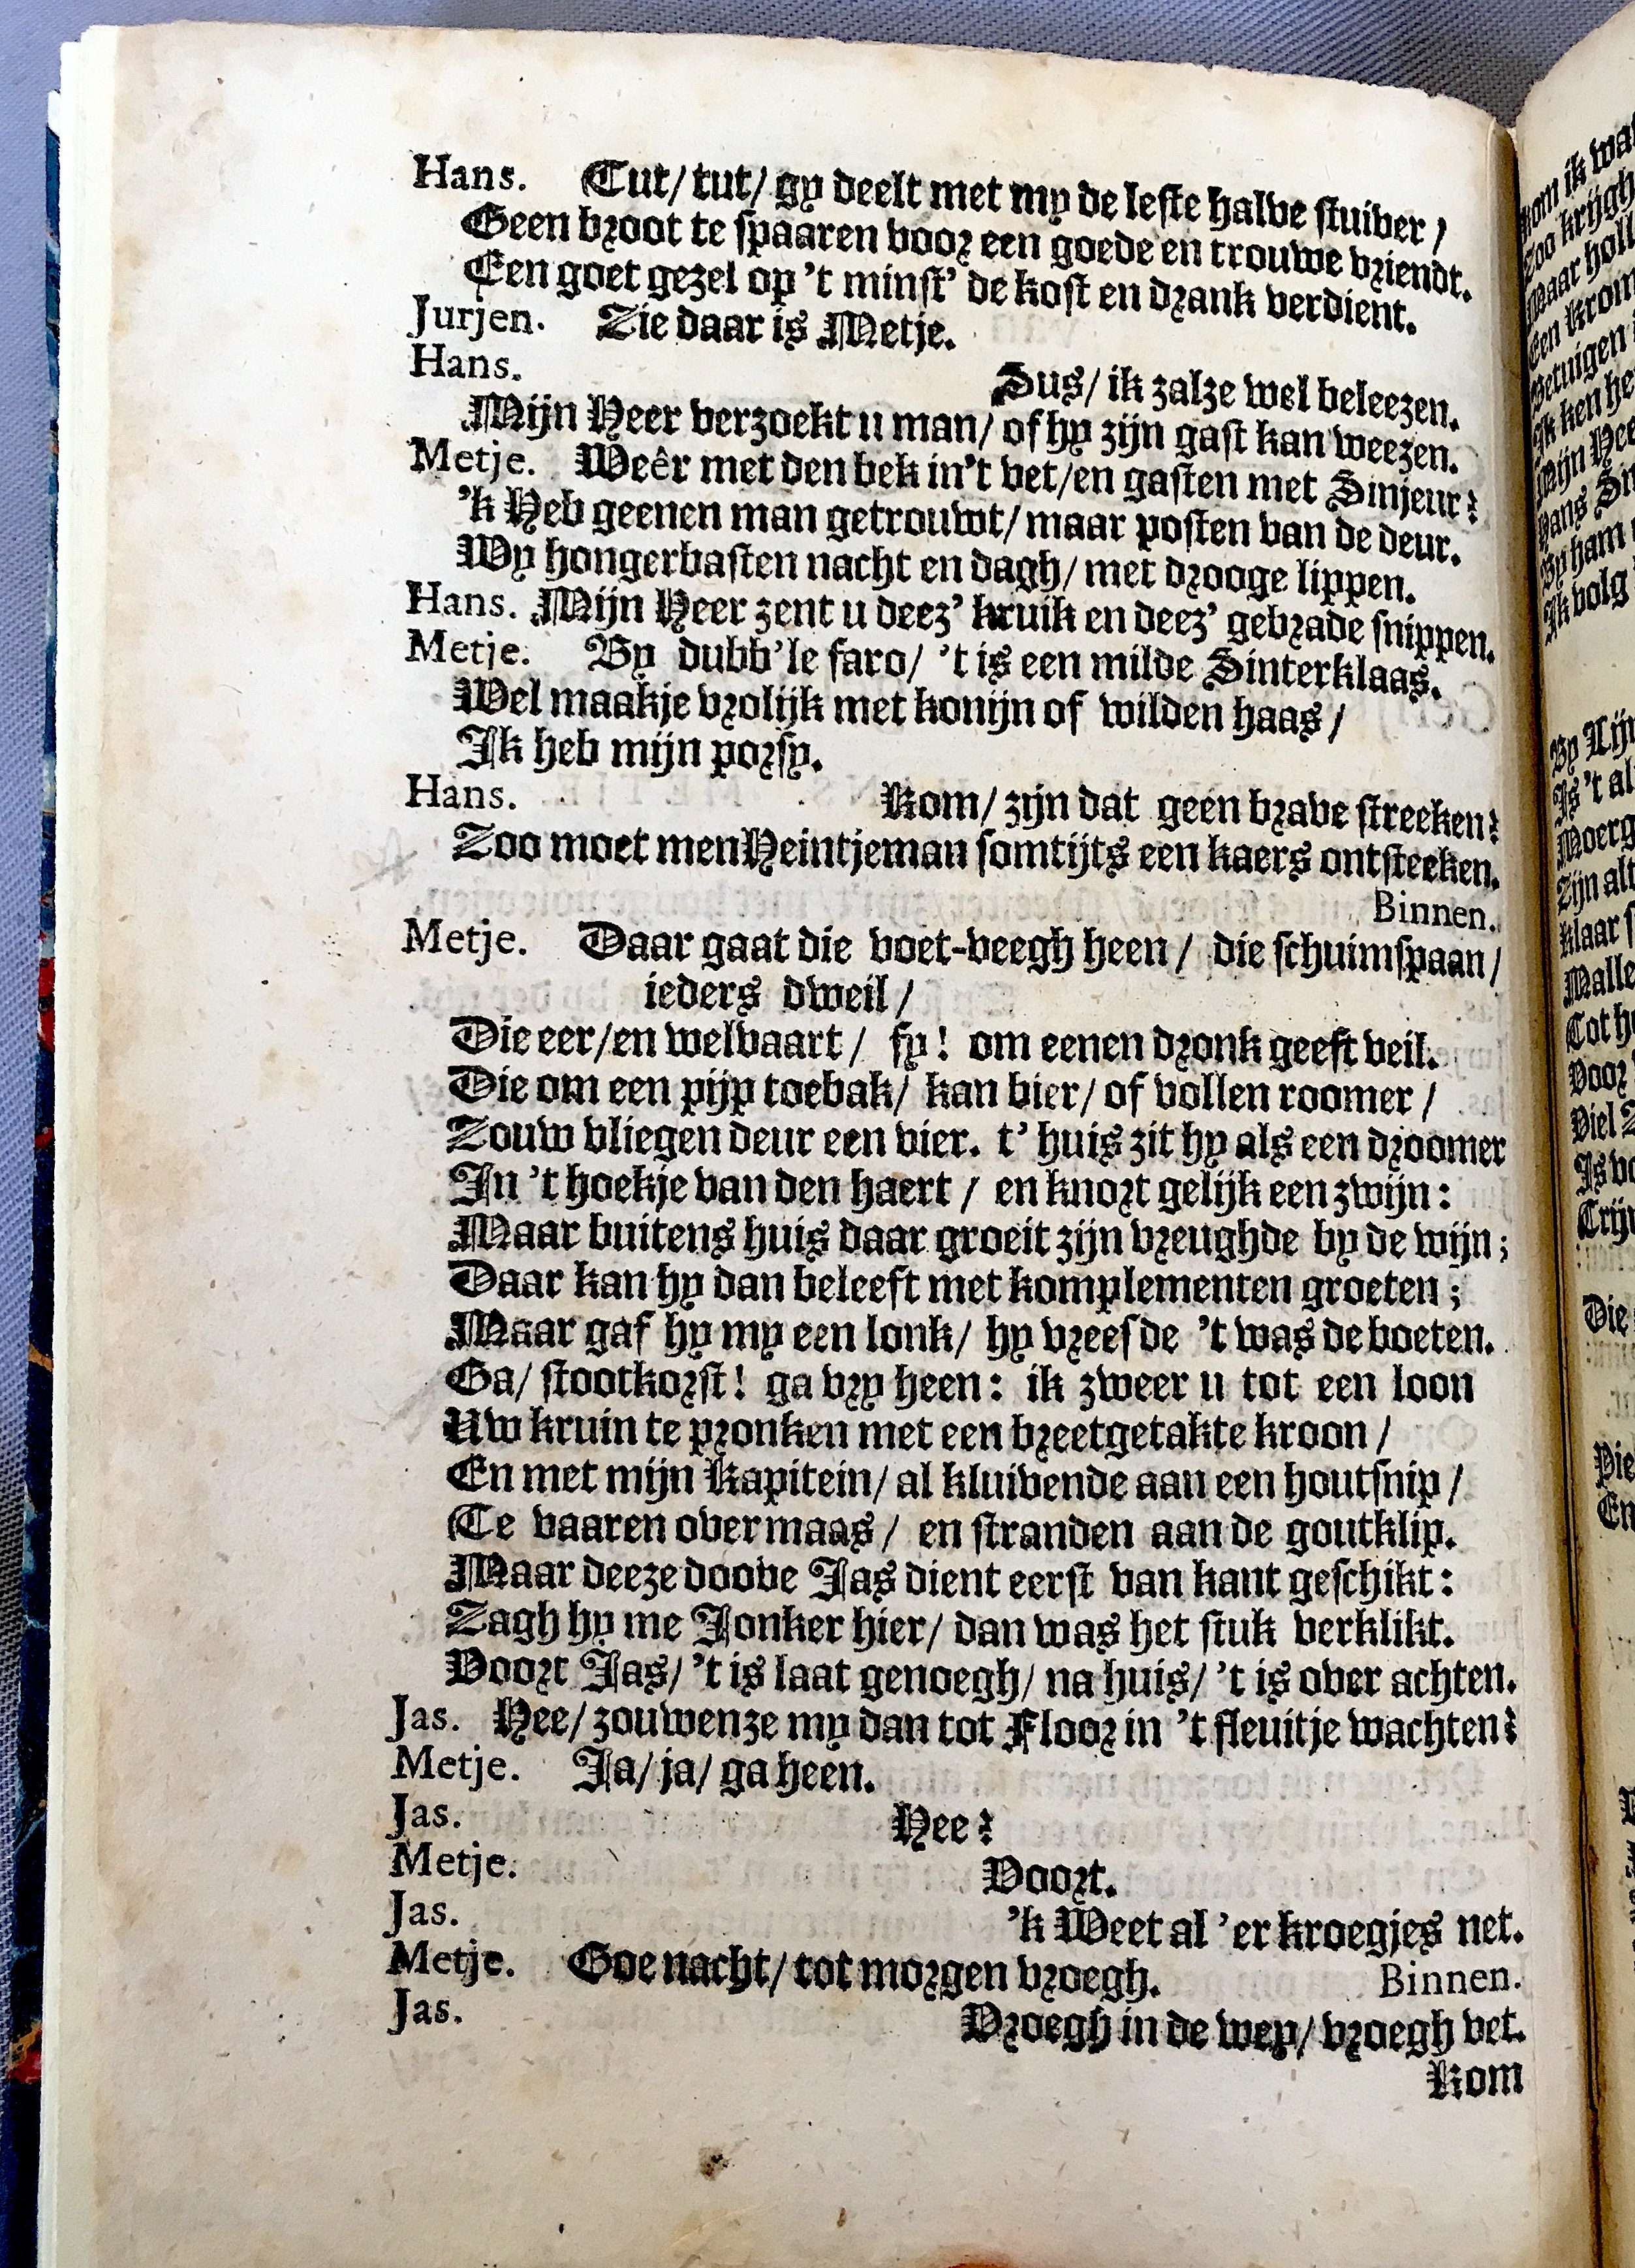 Hans. Tut/ tut/ gy deelt met my de leste halve stuiver /
Geen broot te spaaren voor een goede en trouwe vriendt.
Een goet gezel op 't minst' de kost en drank verdient.
Jurjen. Zie daar is Metje.
Hans. Sus/ ik zalze wel beleezen.
Mijn Heer verzoekt u man/ of hy zijn gast kan weezen.
Metje. Weêr met den bek in't vet/en gasten met Sinjeur?
'k Heb geenen man getrouwt/ maar posten van de deur.
Wy hongerbasten nacht en dagh/ met drooge lippen.
Hans. Mijn Heer zent u deez' kruik en deez' gebrade snippen.
Metje. By dubb'le faro/ 't is een milde Sinterklaas.
Wel maakje vrolijk met konijn of wilden haas /
Ik heb mijn porsy.
Hans. Kom/ zijn dat geen brave streeken?
Zoo moet men Heintjeman somtijts een kaers ontsteeken.
Binnen.
Metje. Daar gaat die voet-veegh heen / die schuimspaan/
ieders dweil /
Die eer/en welvaart / fy! om eenen dronk geeft veil.
Die om een pijp toebak/ kan bier/ of vollen roomer /
Zouw vliegen deur een vier. t' huis zit hy als een droomer
In 't hoekje van den haert / en knort gelijk een zwijn:
Maar buitens huis daar groeit zijn vreughde by de wijn;
Daar kan hy dan beleeft met komplementen groeten;
Maar gaf hy my een lonk/ hy vreesde 't was de boeten.
Ga/ stootkorst! ga vry heen: ik zweer u tot een loon
Uw kruin te pronken met een breetgetakte kroon /
En met mijn Kapitein/ al kluivende aan een houtsnip /
Te vaaren over maas / en stranden aan de goutklip.
Maar deeze doove Jas dient eerst van kant geschikt:
Zagh hy me Jonker hier/ dan was het stuk verklikt.
Voort Jas/ 't is laat genoegh/ na huis/ 't is over achten.
Jas. Hee/ zouwenze my dan tot Floor in 't fleuitje wachten?
Metje. Ja/ ja/ ga heen.
Jas. Hee?
Metje. Voort.
Jas. 'k Weet al 'er kroegjes net.
Metje. Goe nacht/ tot morgen vroegh. Binnen.
Jas. Vroegh in de wey/ vroegh vet.
Kom